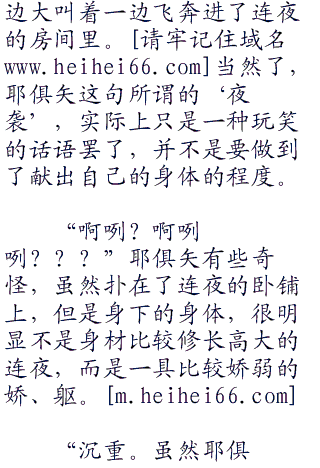 边大叫着一边飞奔进了连夜
的房间里。[请牢记住域名
www.heihei66.com]当然了，
耶俱矢这句所谓的‘夜
袭’，实际上只是一种玩笑
的话语罢了，并不是要做到
了献出自己的身体的程度。
“啊咧？啊咧
咧？？？”耶俱矢有些奇
怪，虽然扑在了连夜的卧铺
上，但是身下的身体，很明
显不是身材比较修长高大的
连夜，而是一具比较娇弱的
娇、躯。[m.heihei66.com]
“沉重。虽然耶俱